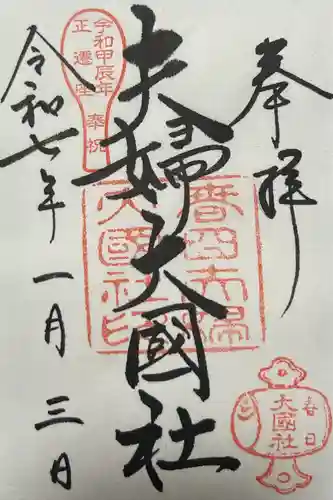 奉拝
夫婦大國社
令和七年一月三日
令和甲辰年
正遷座
奉祝
春日夫婦
大國社印
春日
大國社